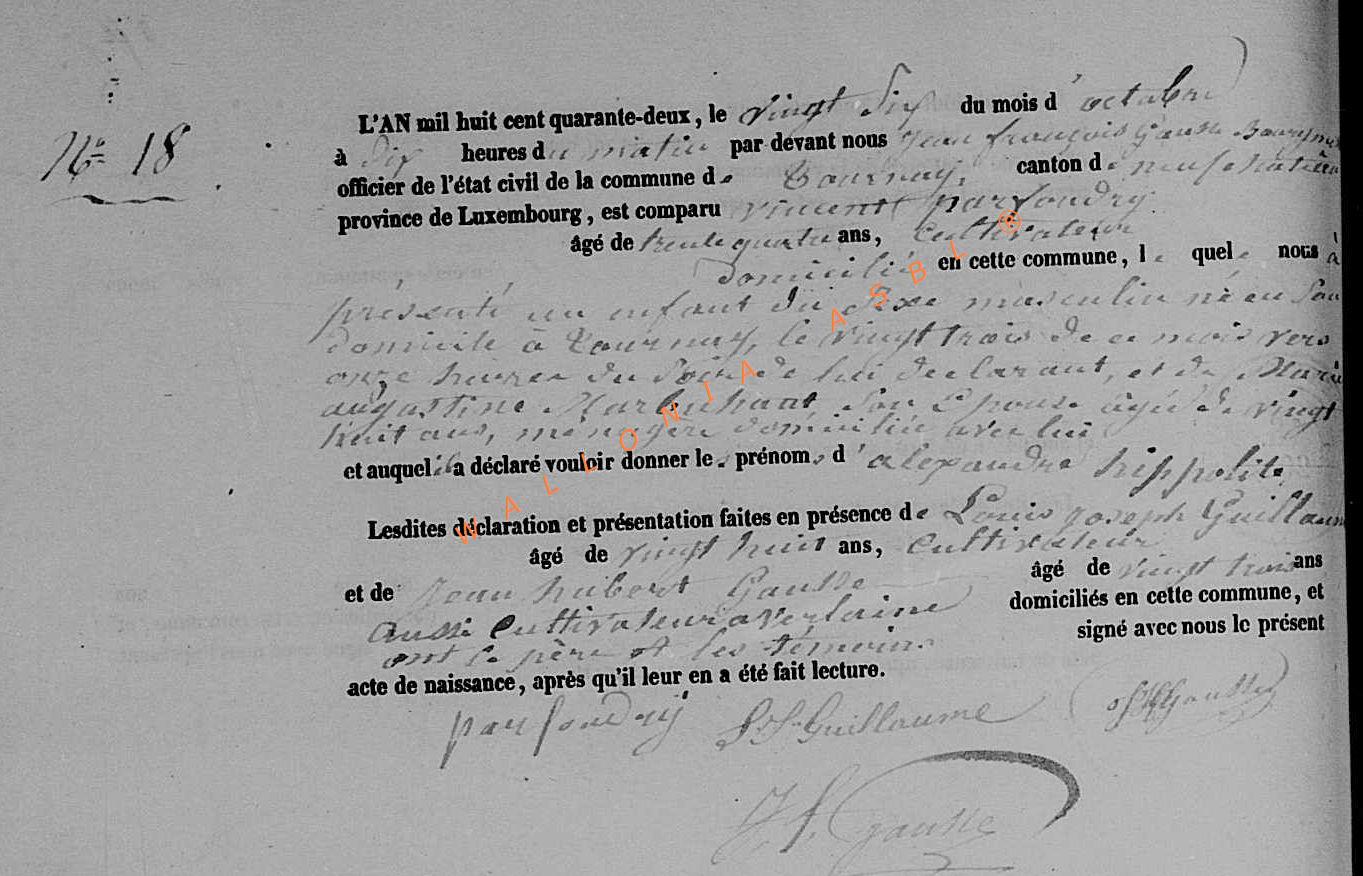 N° 18
L'AN mil huit cent quarante-deux, le vingt Six du mois d'octobre
à dix heures du matin par devant nous Jean françois Gausse Bourgmes
officier de l'état civil de la commune de Tournay, canton de neufchateau
province de Luxembourg, est comparu vincent parfondry
âgé de trente quatre ans, cultivateur
domicilié en cette commune, le quel nous à
présenté un enfant du Sexe masculin né en Son
domicile à Tournay, le vingt trois de ce mois vers
onze heures du Soir de lui declarant, et de Marie
augustine Son Epouse agée de vingt
huit ans, ménagère domiciliée avec lui
et auquel il a déclaré vouloir donner les prénoms d'alexandre hippolite
Lesdites déclaration et présentation faites en présence de Louis Joseph Guillaume
âgé de vingt huit ans, Cultivateur
et de Jean hubert Gausse âgé de vingt trois ans
aussi Cultivateur a Verlaine domiciliés en cette commune, et
ont le père et les témoins signé avec nous le présent
acte de naissance, après qu'il leur en a été fait lecture.
parfondry L. J. Guillaume J H Gausse
J. f. Gausse
WALLONIA ASBL ®